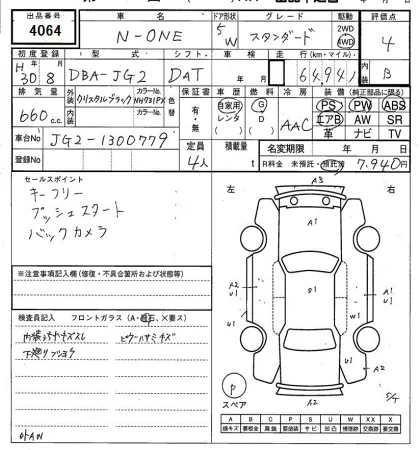 出品番号 車名 ドア形状 グレード 駆動 評価点
4064 N-ONE 5 W スタンダード 2WD 4WD 4
初度登録 型式 シフト 車検 走行(km・マイル) 内装
H 30年 8月 DBA-JG2 DAT 年 月 64,941 B
排気量 外装 クリスタルブラック カラーNo. NH731PX 色替 保証書 車歴 燃料 冷房 装備(純正部品に限る)
660 c.c. 内装 カラーNo. 有・無 自家用 レンタ G D AAC PS PW ABS
エアB AW SR
革 ナビ TV
車台No JG2-1300779 定員 4人 積載量 t 名変期限 年 月 日
登録No R料金 未預託・預託済 7,940円
セールスポイント
キーフリー
プッシュスタート
バックカメラ
※注意事項記入欄(修復・不具合箇所および状態等)
検査員記入 フロントガラス(A・飛石、×要ス)
外AW
左 右
A3
A1
S1
A2
U1
A1
U1
U1
A2
A2
P
スペア
A B C P S U W X XX
線キズ 要板金 腐蝕 要塗装 サビ 凹凸 補修跡 交換跡 要交換